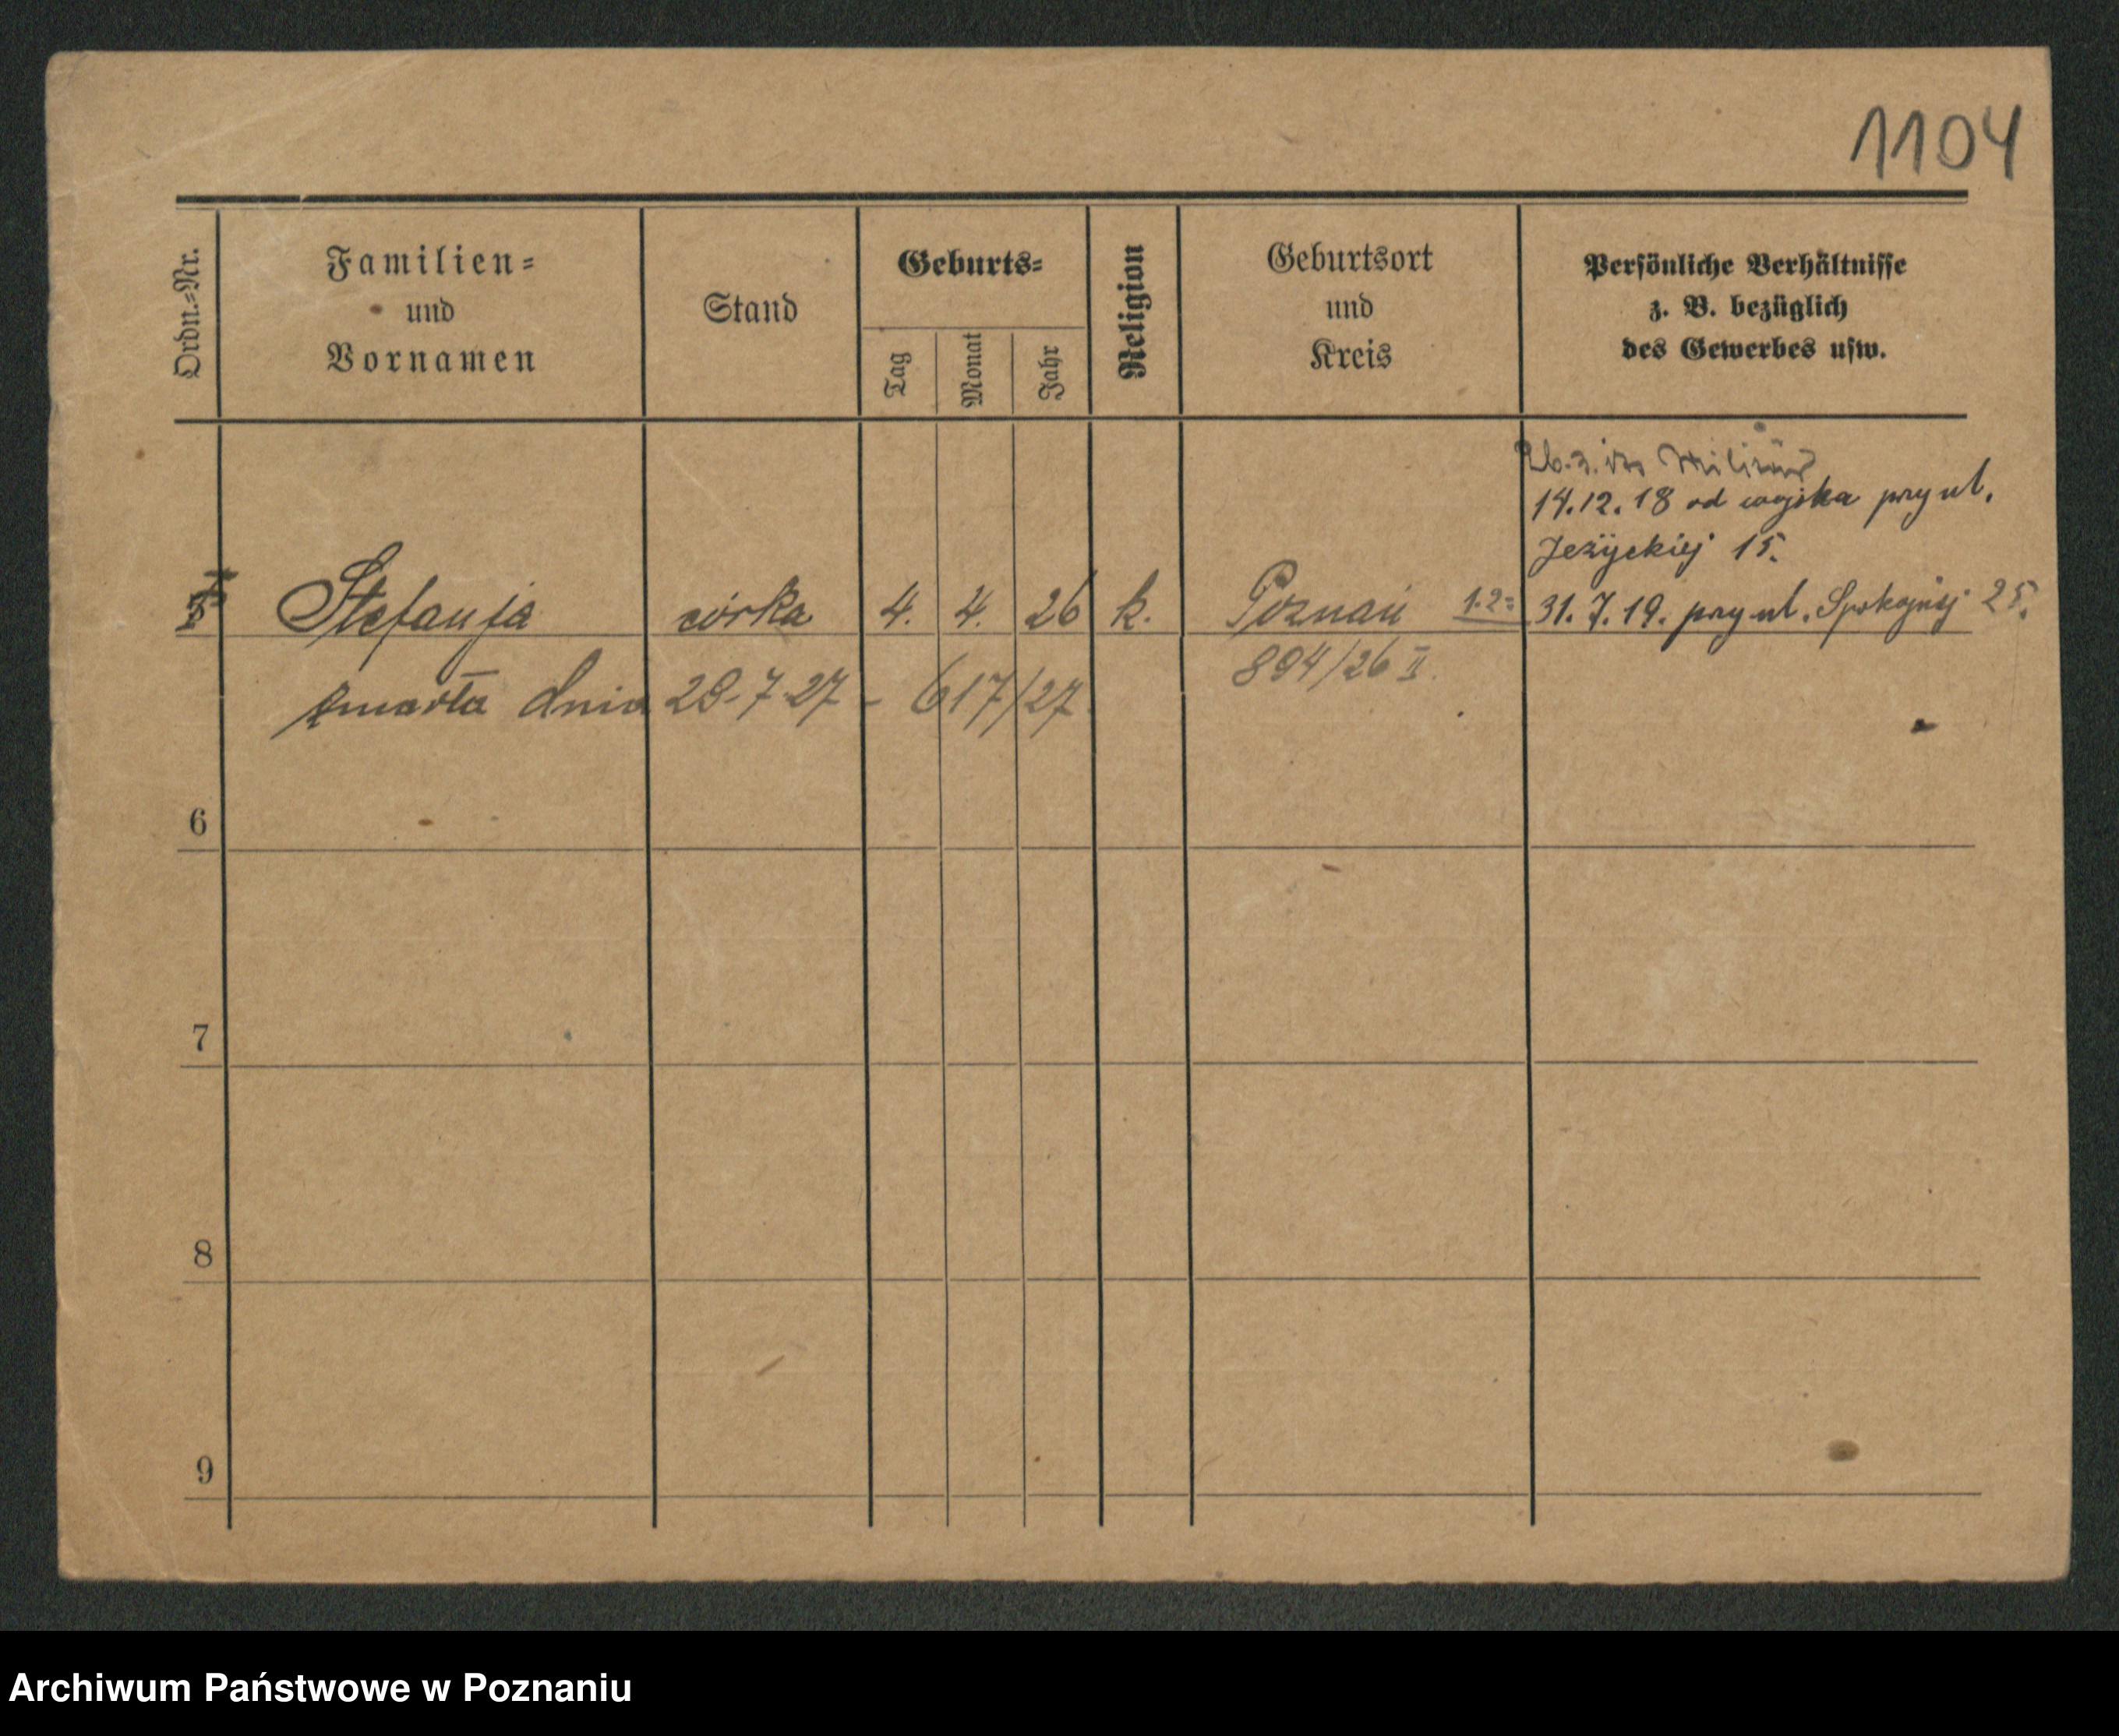 1104
Ordn.-Nr.
Familien-
und
Vornamen
Stand
Geburts-
Tag
Monat
Jahr
Religion
Geburtsort
und
Kreis
Persönliche Verhältnisse
z. B. bezüglich
des Gewerbes usw.
Militär
14.12.18 od wojska przy ul.
Jeżyckiej 15.
5 Stefanja córka 4. 4. 26 k. Poznań 1.2= 31. 7. 19. przy ul. Spokojnej 25.
zmarła dnia 28-7-27 - 617/27. 894/26 II.
6
7
8
9
Archiwum Państwowe w Poznaniu